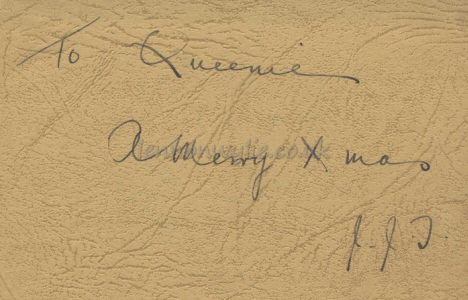 To Queenie
A Merry Xmas
J.J.J.